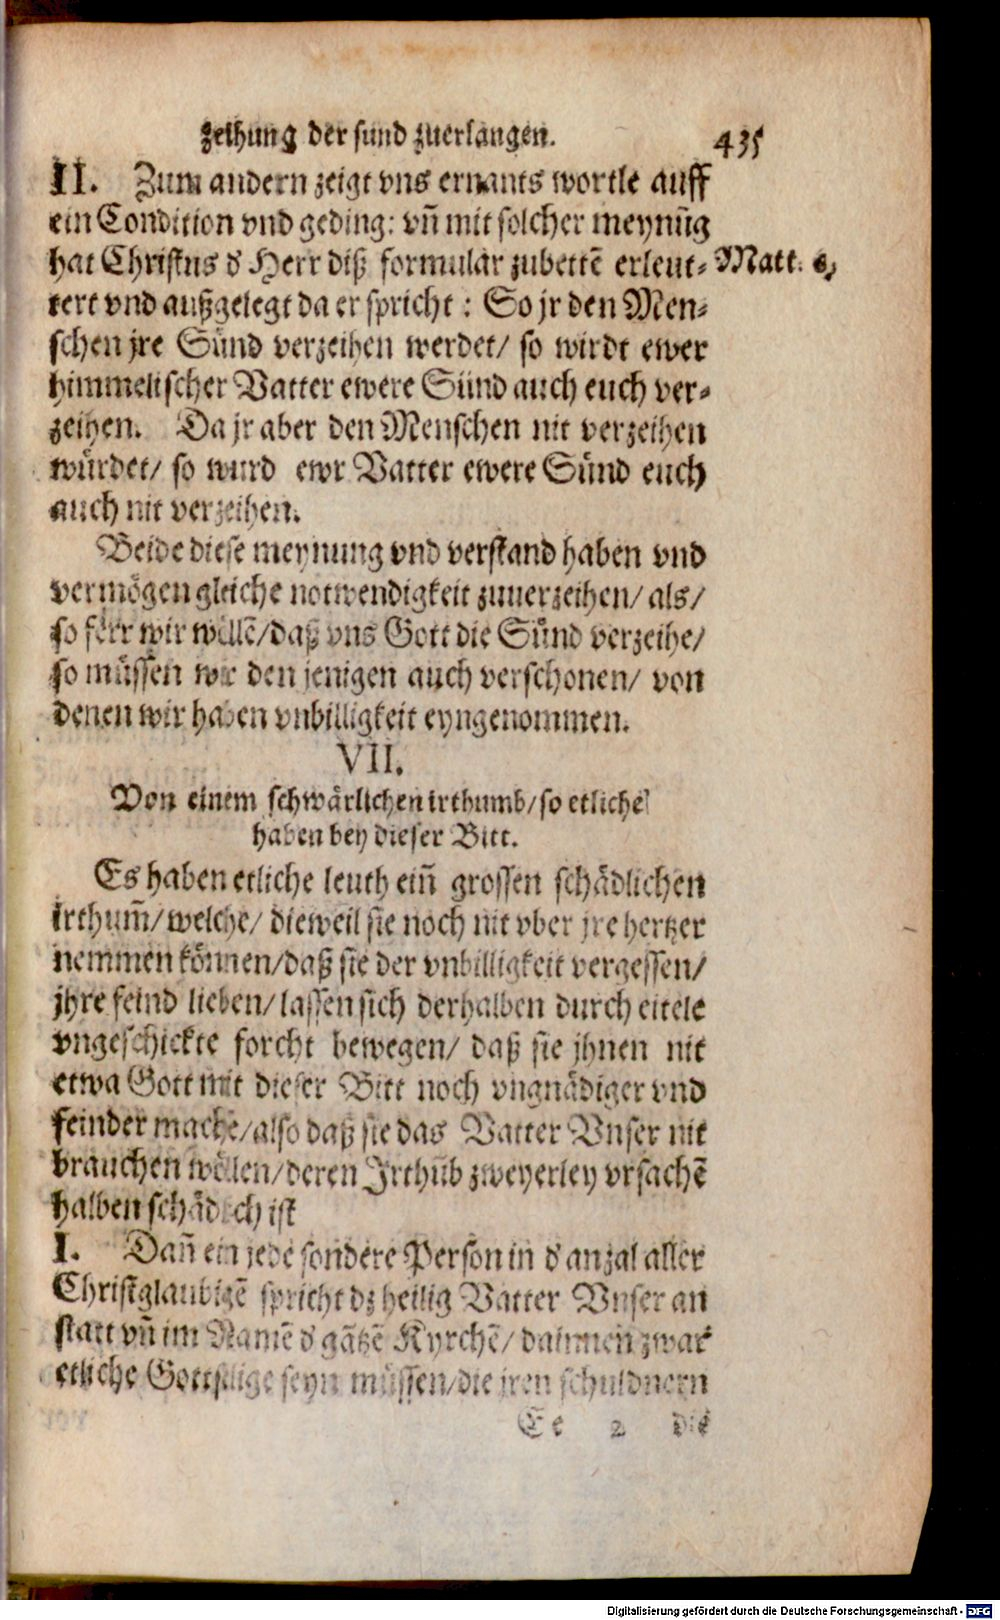 zeihung der sünd zuerlangen. 435
II. Zum andern zeigt vns ernants wortle auff
ein Condition vnd geding: vñ mit solcher meynũg
hat Christus d' Herr diß formular zubettẽ erleut-
Matt. 6,
tert vnd außgelegt da er spricht: So jr den Men-
schen jre Sünd verzeihen werdet/ so wirdt ewer
himmelischer Vatter ewere Sünd auch euch ver-
zeihen. Da jr aber den Menschen nit verzeihen
würdet/ so wurd ewr Vatter ewere Sünd euch
auch nit verzeihen.
Beide diese meynung vnd verstand haben vnd
vermögen gleiche notwendigkeit zuuerzeihen/ als/
so ferr wir wöllẽ/ daß vns Gott die Sünd verzeihe/
so müssen wir den jenigen auch verschonen/ von
denen wir haben vnbilligkeit eyngenommen.
VII.
Von einem schwärlichen irthumb/ so etliche
haben bey dieser Bitt.
Es haben etliche leuth eiñ grossen schädlichen
irthum̃/ welche/ dieweil sie noch nit vber jre hertzer
nemmen können/ daß sie der vnbilligkeit vergessen/
jhre feind lieben/ lassen sich derhalben durch eitele
vngeschickte forcht bewegen/ daß sie jhnen nit
etwa Gott mit dieser Bitt noch vngnädiger vnd
feinder mache/ also daß sie das Vatter Vnser nit
brauchen wöllen/ deren Irthũb zweyerley vrsachẽ
halben schädlich ist
I. Dañ ein jede sondere Person in d' anzal aller
Christglaubigẽ spricht dz heilig Vatter Vnser an
statt vñ im Namẽ d' gãtzẽ Kyrchẽ/ darinnen zwar
etliche Gottselige seyn müssen/ die jren schuldnern
Ee 2 die
Digitalisierung gefördert durch die Deutsche Forschungsgemeinschaft - DFG